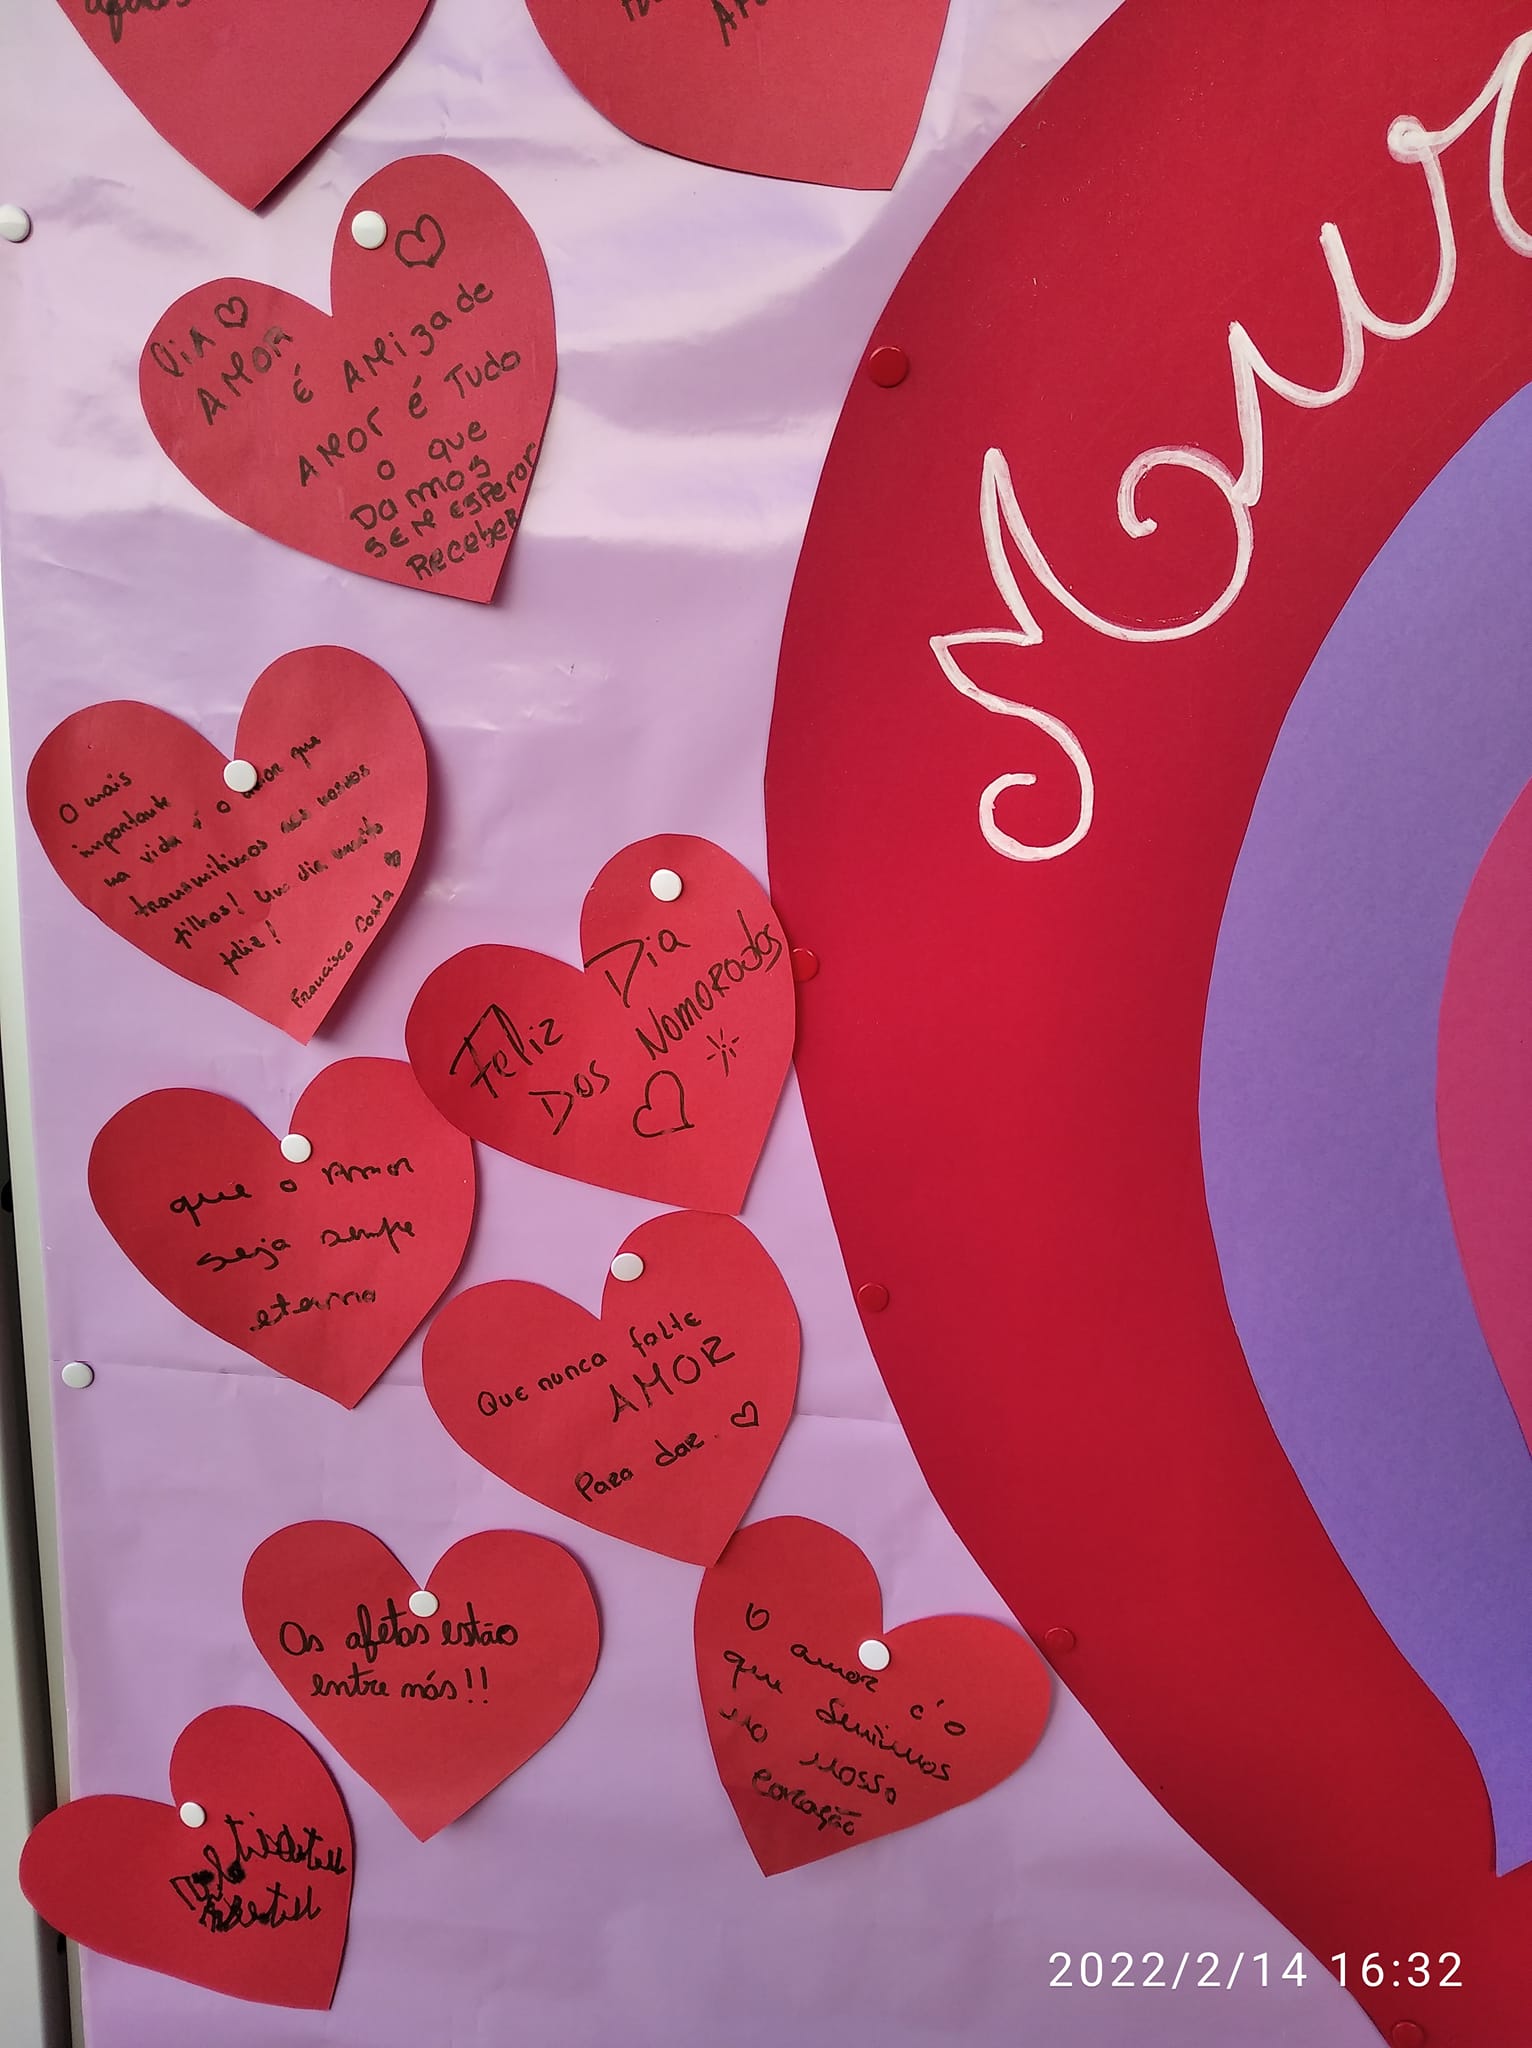 DIA
AMOR
É AMizade
AMOR é Tudo
O que
Damos
SEM ESPerar
Receber
O mais
importante
na vida é o amor que
transmitimos aos nossos
filhos! Um dia muito
feliz!
Francisco Costa
Feliz Dia
DOS NAMORADOS
que o Amor
seja sempre
eterno
Que nunca falte
AMOR
Para dar.
Os afetos estão
entre nós!!
O amor é o
que Sentimos
no nosso
coração
2022/2/14 16:32